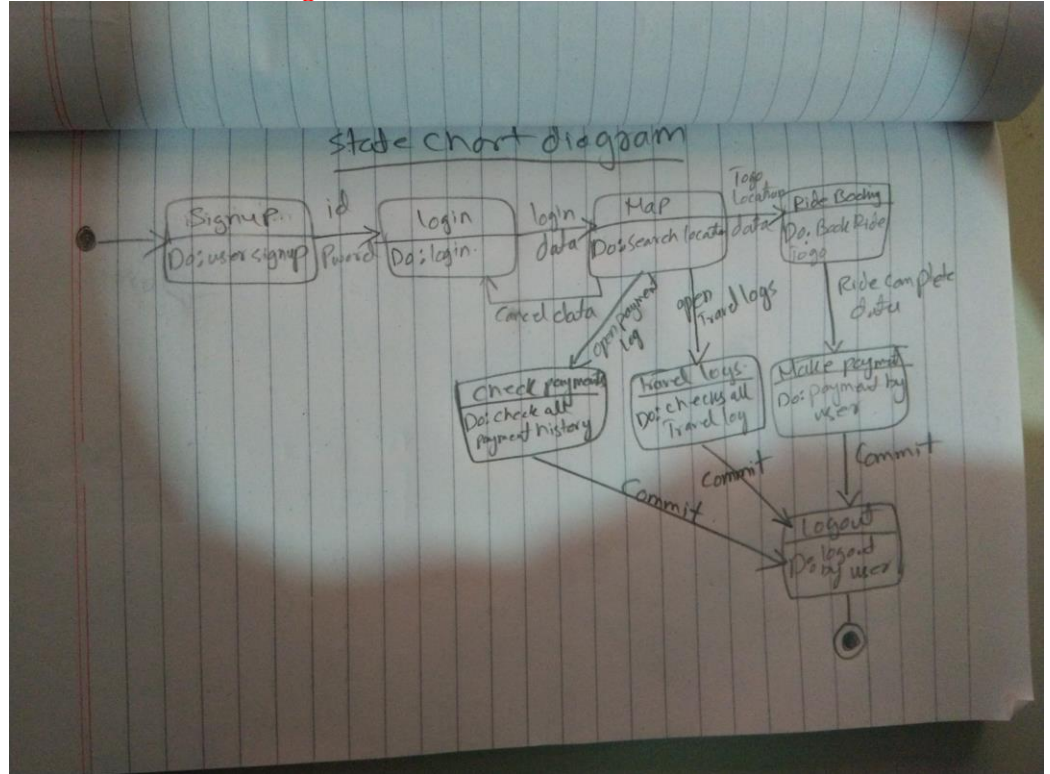 state chart diagram
Signup
Do: user signup
id
Pword
login
Do: login.
login
data
Map
Do: search locate
Togo
Location
data
Ride Booking
Do: Book Ride
Togo
Cancel data
open payment
log
open
Travel logs
Ride complete
data
Check payments
Do: check all
payment history
travel logs
Do: checks all
Travel log
Make payment
Do: payment by
user
Commit
Commit
Commit
logout
Do: logout
by user